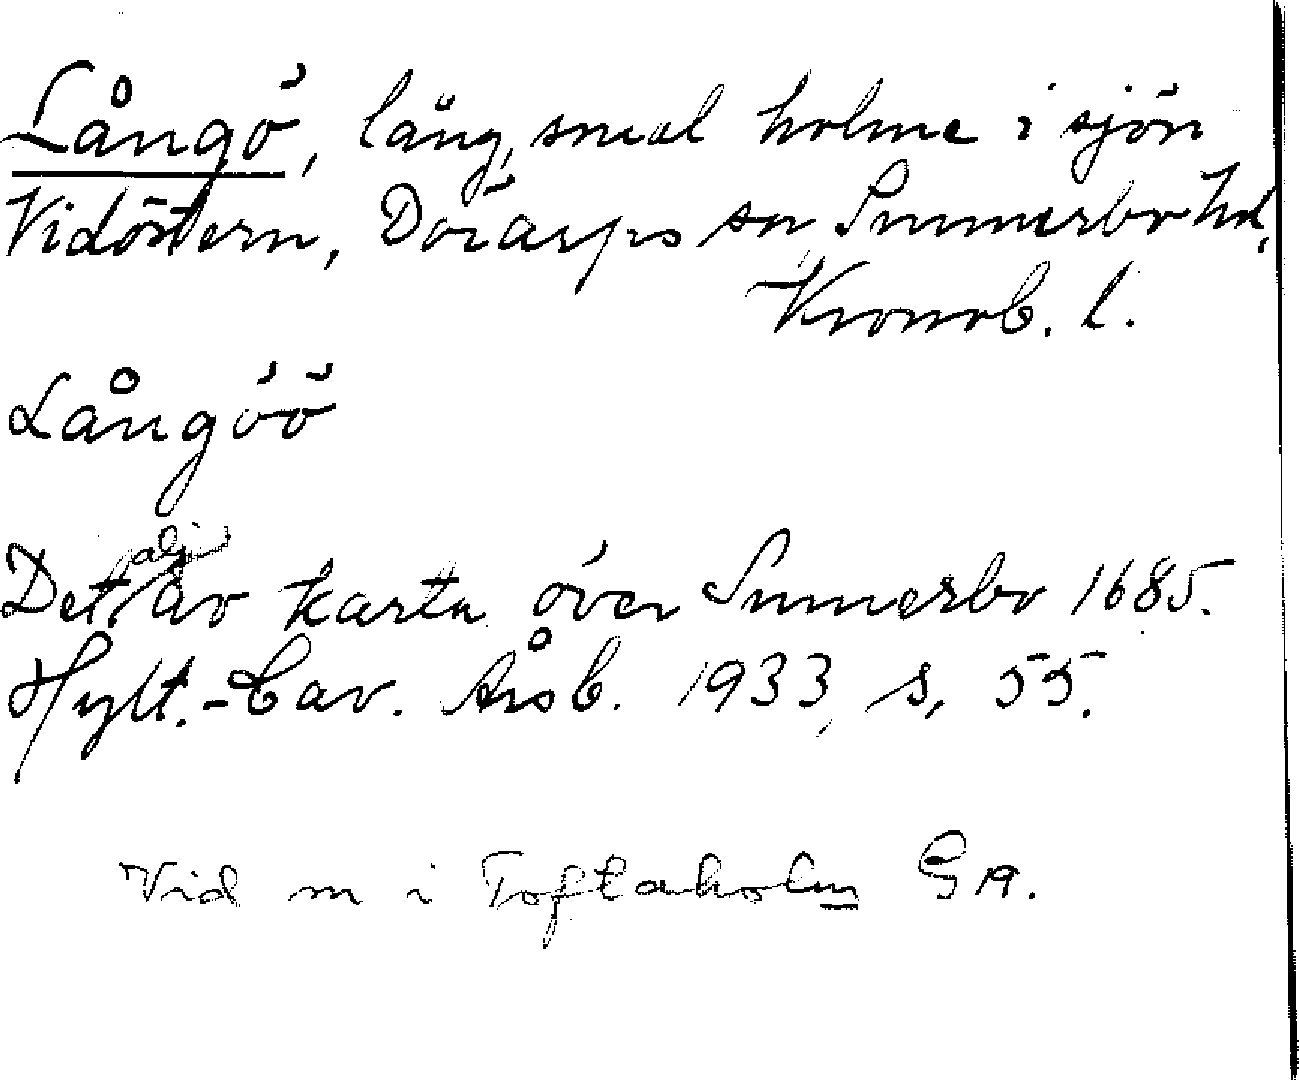 Långö, lång, smal holme i sjön
Vidöstern, Dörarps sn, Sunnerbo hd,
Kronob. l.
Långöö
Detalj av karta över Sunnerbo 1685.
Hylt.-Cav. Årsb. 1933, s. 55.
Vid m i Toftaholm G19.